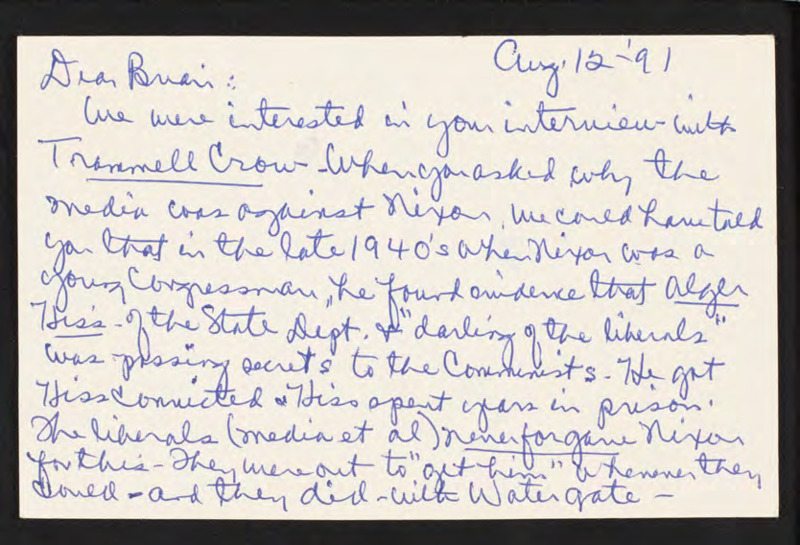 Aug. 12 - '91
Dear Brian:
We were interested in your interview with
Trammell Crow - When you asked why the
media was against Nixon, we could have told
you that in the late 1940's when Nixon was a
young Congressman, he found evidence that Alger
Hiss - of the State Dept. & "darling of the liberals"
was passing secrets to the Communists - He got
Hiss convicted & Hiss spent years in prison.
The liberals (media et al) never forgave Nixon
for this - They were out to "get him" whenever they
could - and they did - with Watergate -